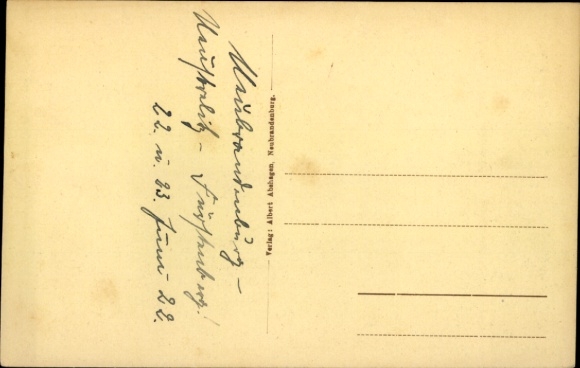 Neubrandenburg –
Neustrelitz – Fürstenberg!
22. u. 23. Juni 22.
Verlag: Albert Abshagen, Neubrandenburg.